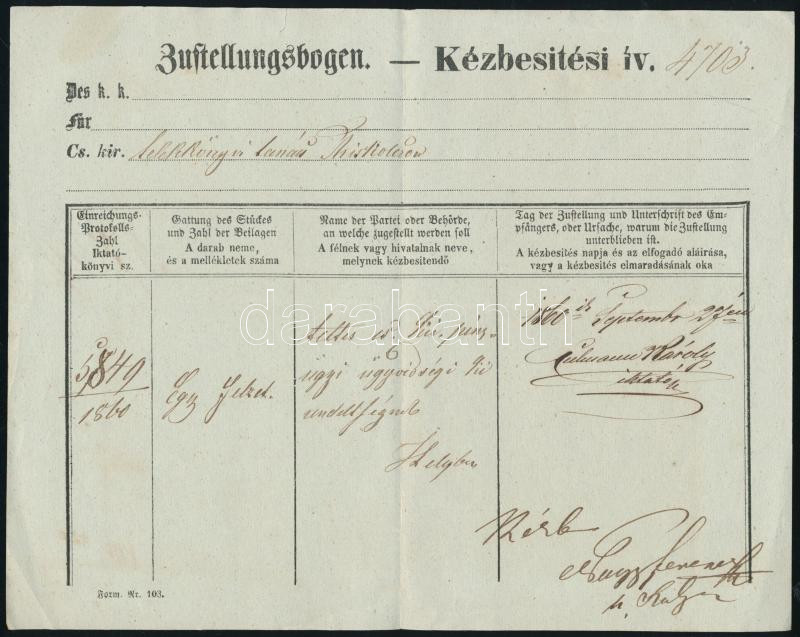 Zustellungsbogen. — Kézbesitési ív. 4703.
Des k. k.
Für
Cs. kir. telekkönyvi tanács Miskolczon
Einreichungs-
Protokolls-
Zahl
Iktató-
könyvi sz.
Gattung des Stückes
und Zahl der Beilagen
A darab neme,
és a mellékletek száma
Name der Partei oder Behörde,
an welche zugestellt werden soll
A félnek vagy hivatalnak neve,
melynek kézbesitendő
Tag der Zustellung und Unterschrift des Em-
pfängers, oder Ursache, warum die Zustellung
unterblieben ist.
A kézbesités napja és az elfogadó aláirása,
vagy a kézbesités elmaradásának oka
5849
1860
Egy
cs. kir. pénz-
ügyi ügyvédségi ki
rendeltségnek
Helyben
1860 ik Septembr 27én
Károly
iktató
Kézb
Nagy Ferencz
Form. Nr. 103.
darabanth